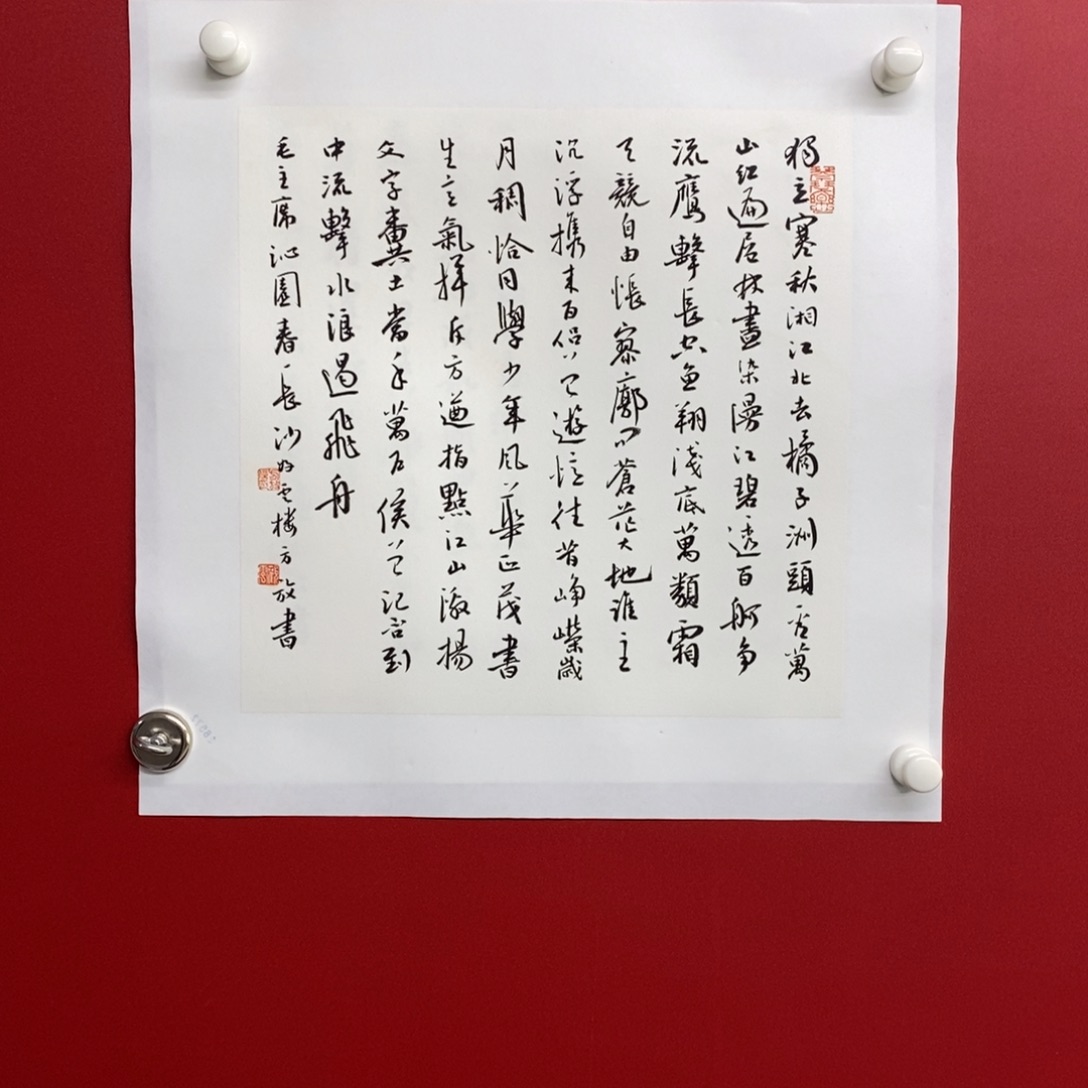 獨立寒秋湘江北去橘子洲頭看萬
山紅遍层林盡染漫江碧透百舸争
流鹰擊長空魚翔淺底萬類霜
天競自由悵寥廓问蒼茫大地誰主
沉浮携来百侣曾遊憶往昔峥嶸歲
月稠恰同學少年风華正茂書
生意氣揮斥方遒指點江山激揚
文字糞土當年萬户侯曾记否到
中流擊水浪遏飛舟
毛主席沁園春長沙 雲樓方放書